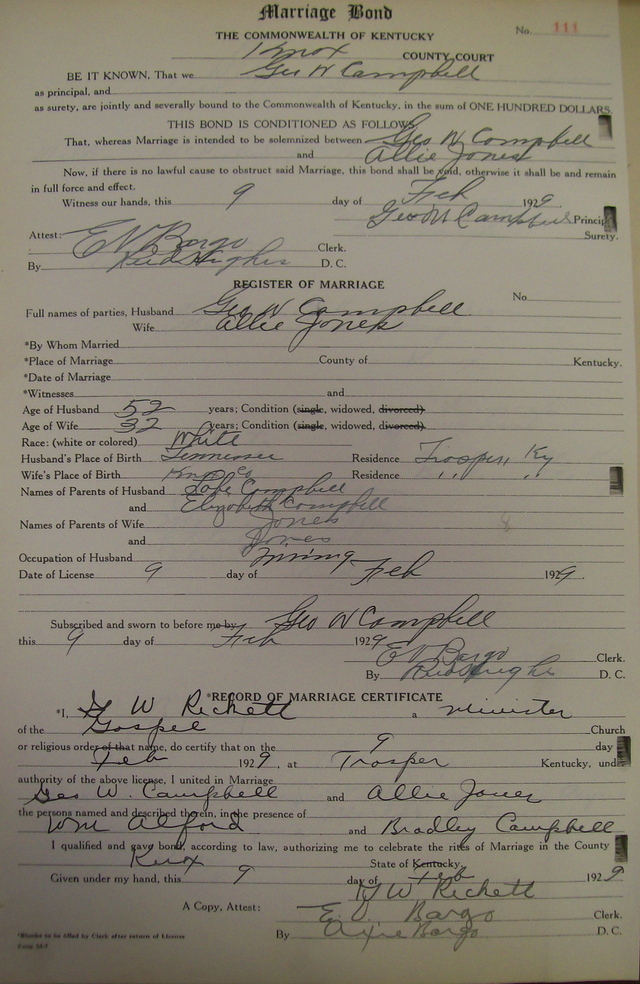 Marriage Bond
THE COMMONWEALTH OF KENTUCKY
No. 111
Knox COUNTY COURT
BE IT KNOWN, That we Geo W Campbell
as principal, and
as surety, are jointly and severally bound to the Commonwealth of Kentucky, in the sum of ONE HUNDRED DOLLARS.
THIS BOND IS CONDITIONED AS FOLLOWS
That, whereas Marriage is intended to be solemnized between Geo W Campbell
and Allie Jones
Now, if there is no lawful cause to obstruct said Marriage, this bond shall be void, otherwise it shall be and remain
in full force and effect.
Witness our hands, this 9 day of Feb 1929
Geo W Campbell Princip
Surety.
Attest: E V Bargo Clerk.
By Reed Hughes D. C.
REGISTER OF MARRIAGE
No
Full names of parties, Husband Geo W Campbell
Wife Allie Jones
*By Whom Married
*Place of Marriage County of Kentucky.
*Date of Marriage
*Witnesses and
Age of Husband 52 years; Condition (single, widowed, divorced)
Age of Wife 32 years; Condition (single, widowed, divorced)
Race: (white or colored) White
Husband's Place of Birth Tennessee Residence Trosper, Ky
Wife's Place of Birth Knox Co Residence " "
Names of Parents of Husband Campbell
and Elizabeth Campbell
Names of Parents of Wife Jones
and Jones
Occupation of Husband Mining
Date of License 9 day of Feb 1929.
Subscribed and sworn to before me by Geo W Campbell
this 9 day of Feb 1929
E V Bargo Clerk.
By Reed Hughes D. C.
*RECORD OF MARRIAGE CERTIFICATE
*I, G W Rickett a Minister
of the Gospel Church
or religious order of that name, do certify that on the 9 day
Feb 1929, at Trosper Kentucky, und
authority of the above license, I united in Marriage
Geo W. Campbell and Allie Jones
the persons named and described therein, in the presence of
Wm Alford and Bradley Campbell
I qualified and gave bond, according to law, authorizing me to celebrate the rites of Marriage in the County
Knox State of Kentucky.
Given under my hand, this 9 day of Feb 1929
G W Rickett
A Copy, Attest: E. V. Bargo Clerk.
By Bargo D. C.
*Blanks to be filled by Clerk after return of License